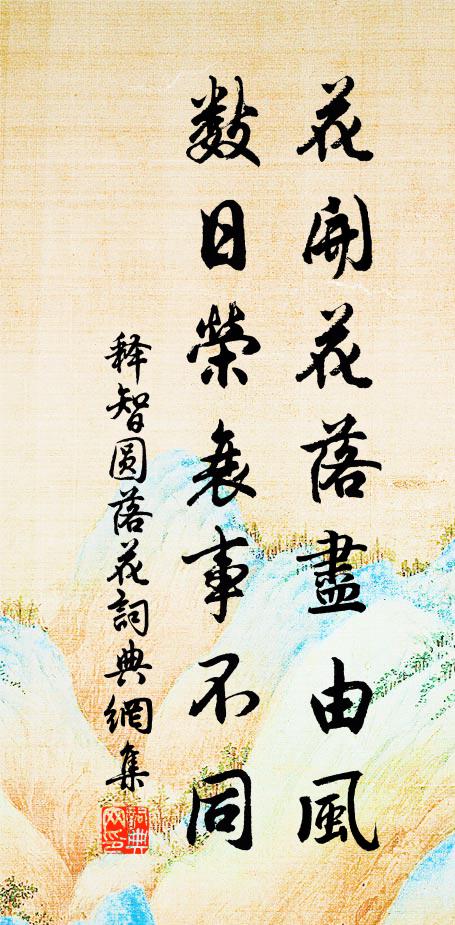 花開花落盡由風
数日榮衰事不同
释智圆落花詞典網集
詞典网印